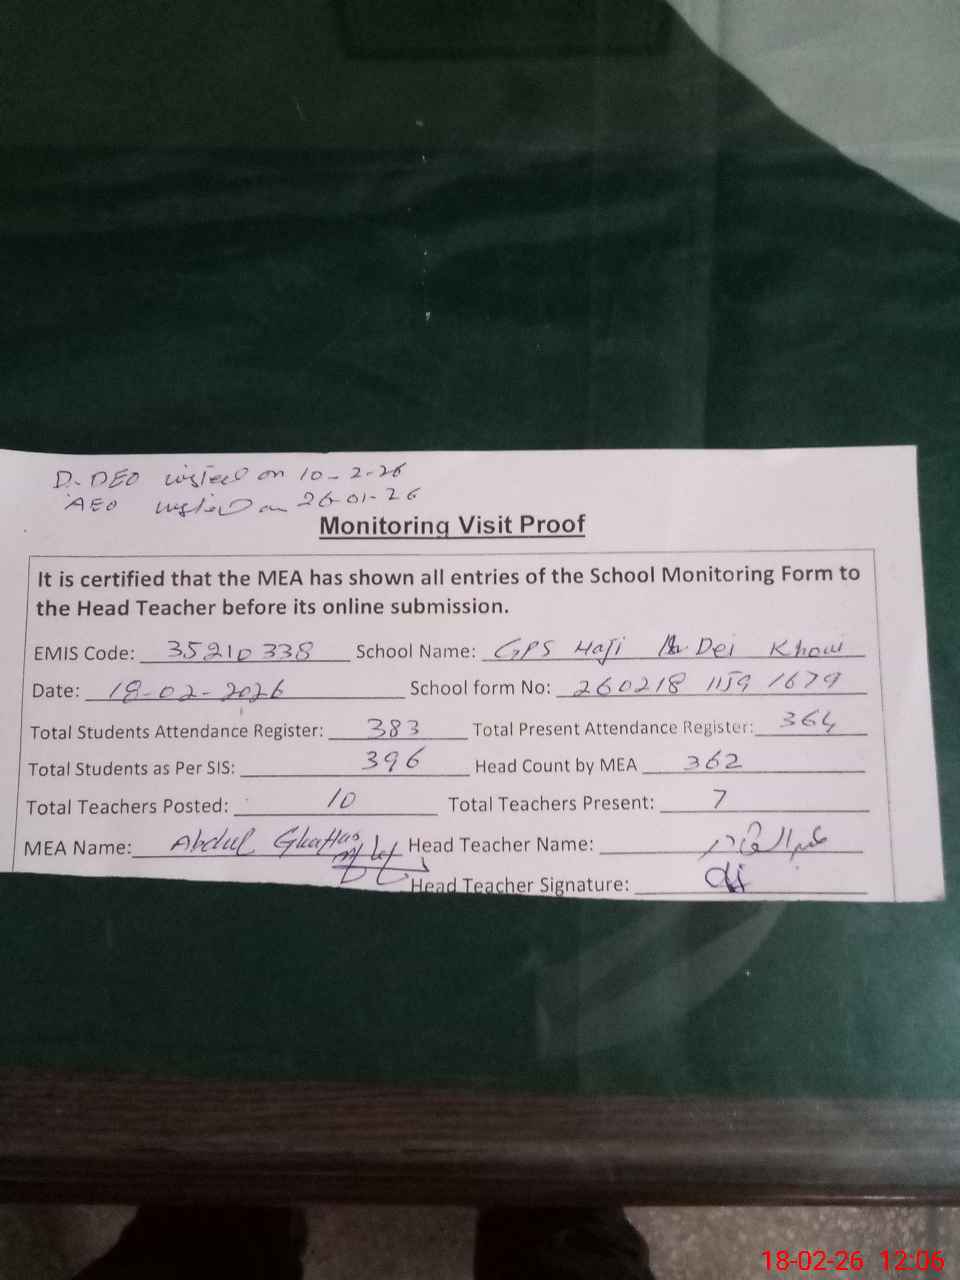 D.DEO visited on 10-2-26
AEO visited on 26-01-26
Monitoring Visit Proof
It is certified that the MEA has shown all entries of the School Monitoring Form to
the Head Teacher before its online submission.
EMIS Code: 35210338 School Name: GPS Haji Dei Khow
Date: 18-02-2026 School form No: 260218 1159 1679
Total Students Attendance Register: 383 Total Present Attendance Register: 364
Total Students as Per SIS: 396 Head Count by MEA 362
Total Teachers Posted: 10 Total Teachers Present: 7
MEA Name: Abdul Ghaffar Head Teacher Name:
Head Teacher Signature:
18-02-26 12:06